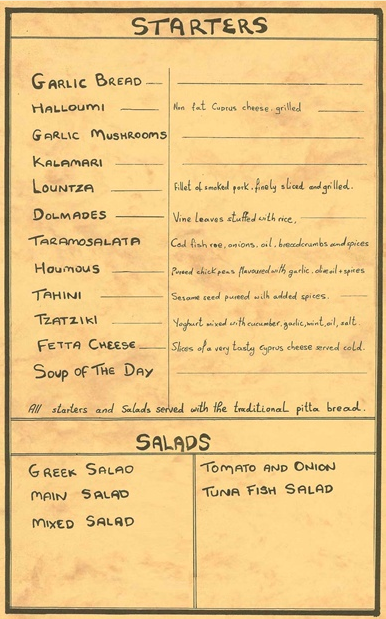 STARTERS
GARLIC BREAD
HALLOUMI Non fat Cyprus cheese, grilled
GARLIC MUSHROOMS
KALAMARI
LOUNTZA Fillet of smoked pork, finely sliced and grilled.
DOLMADES Vine leaves stuffed with rice,
TARAMOSALATA Cod fish roe, onions, oil, breadcrumbs and spices
HOUMOUS Pureed chick peas flavoured with garlic, olive oil + spices
TAHINI Sesame seed pureed with added spices.
TZATZIKI Yoghurt mixed with cucumber, garlic, mint, oil, salt.
FETTA CHEESE Slices of a very tasty Cyprus cheese served cold.
SOUP OF THE DAY
All starters and Salads served with the traditional pitta bread.
SALADS
GREEK SALAD
MAIN SALAD
MIXED SALAD
TOMATO AND ONION
TUNA FISH SALAD